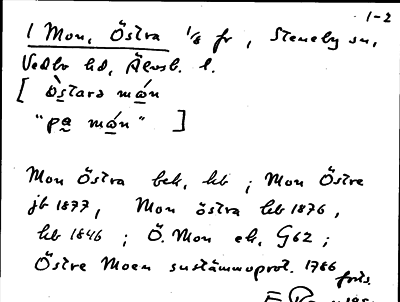 1-2
1 Mon, Östra 1/8 fr, Steneby sn,
Vedbo hd, Älvsb. l.
[ òstarə mån
"pa mån" ]
Mon Östra bek, kb ; Mon Östre
jb 1877, Mon östra kb 1876,
kb 1846 ; Ö. Mon ek, G62 ;
Östre Moen sustämmoprot. 1786
forts.